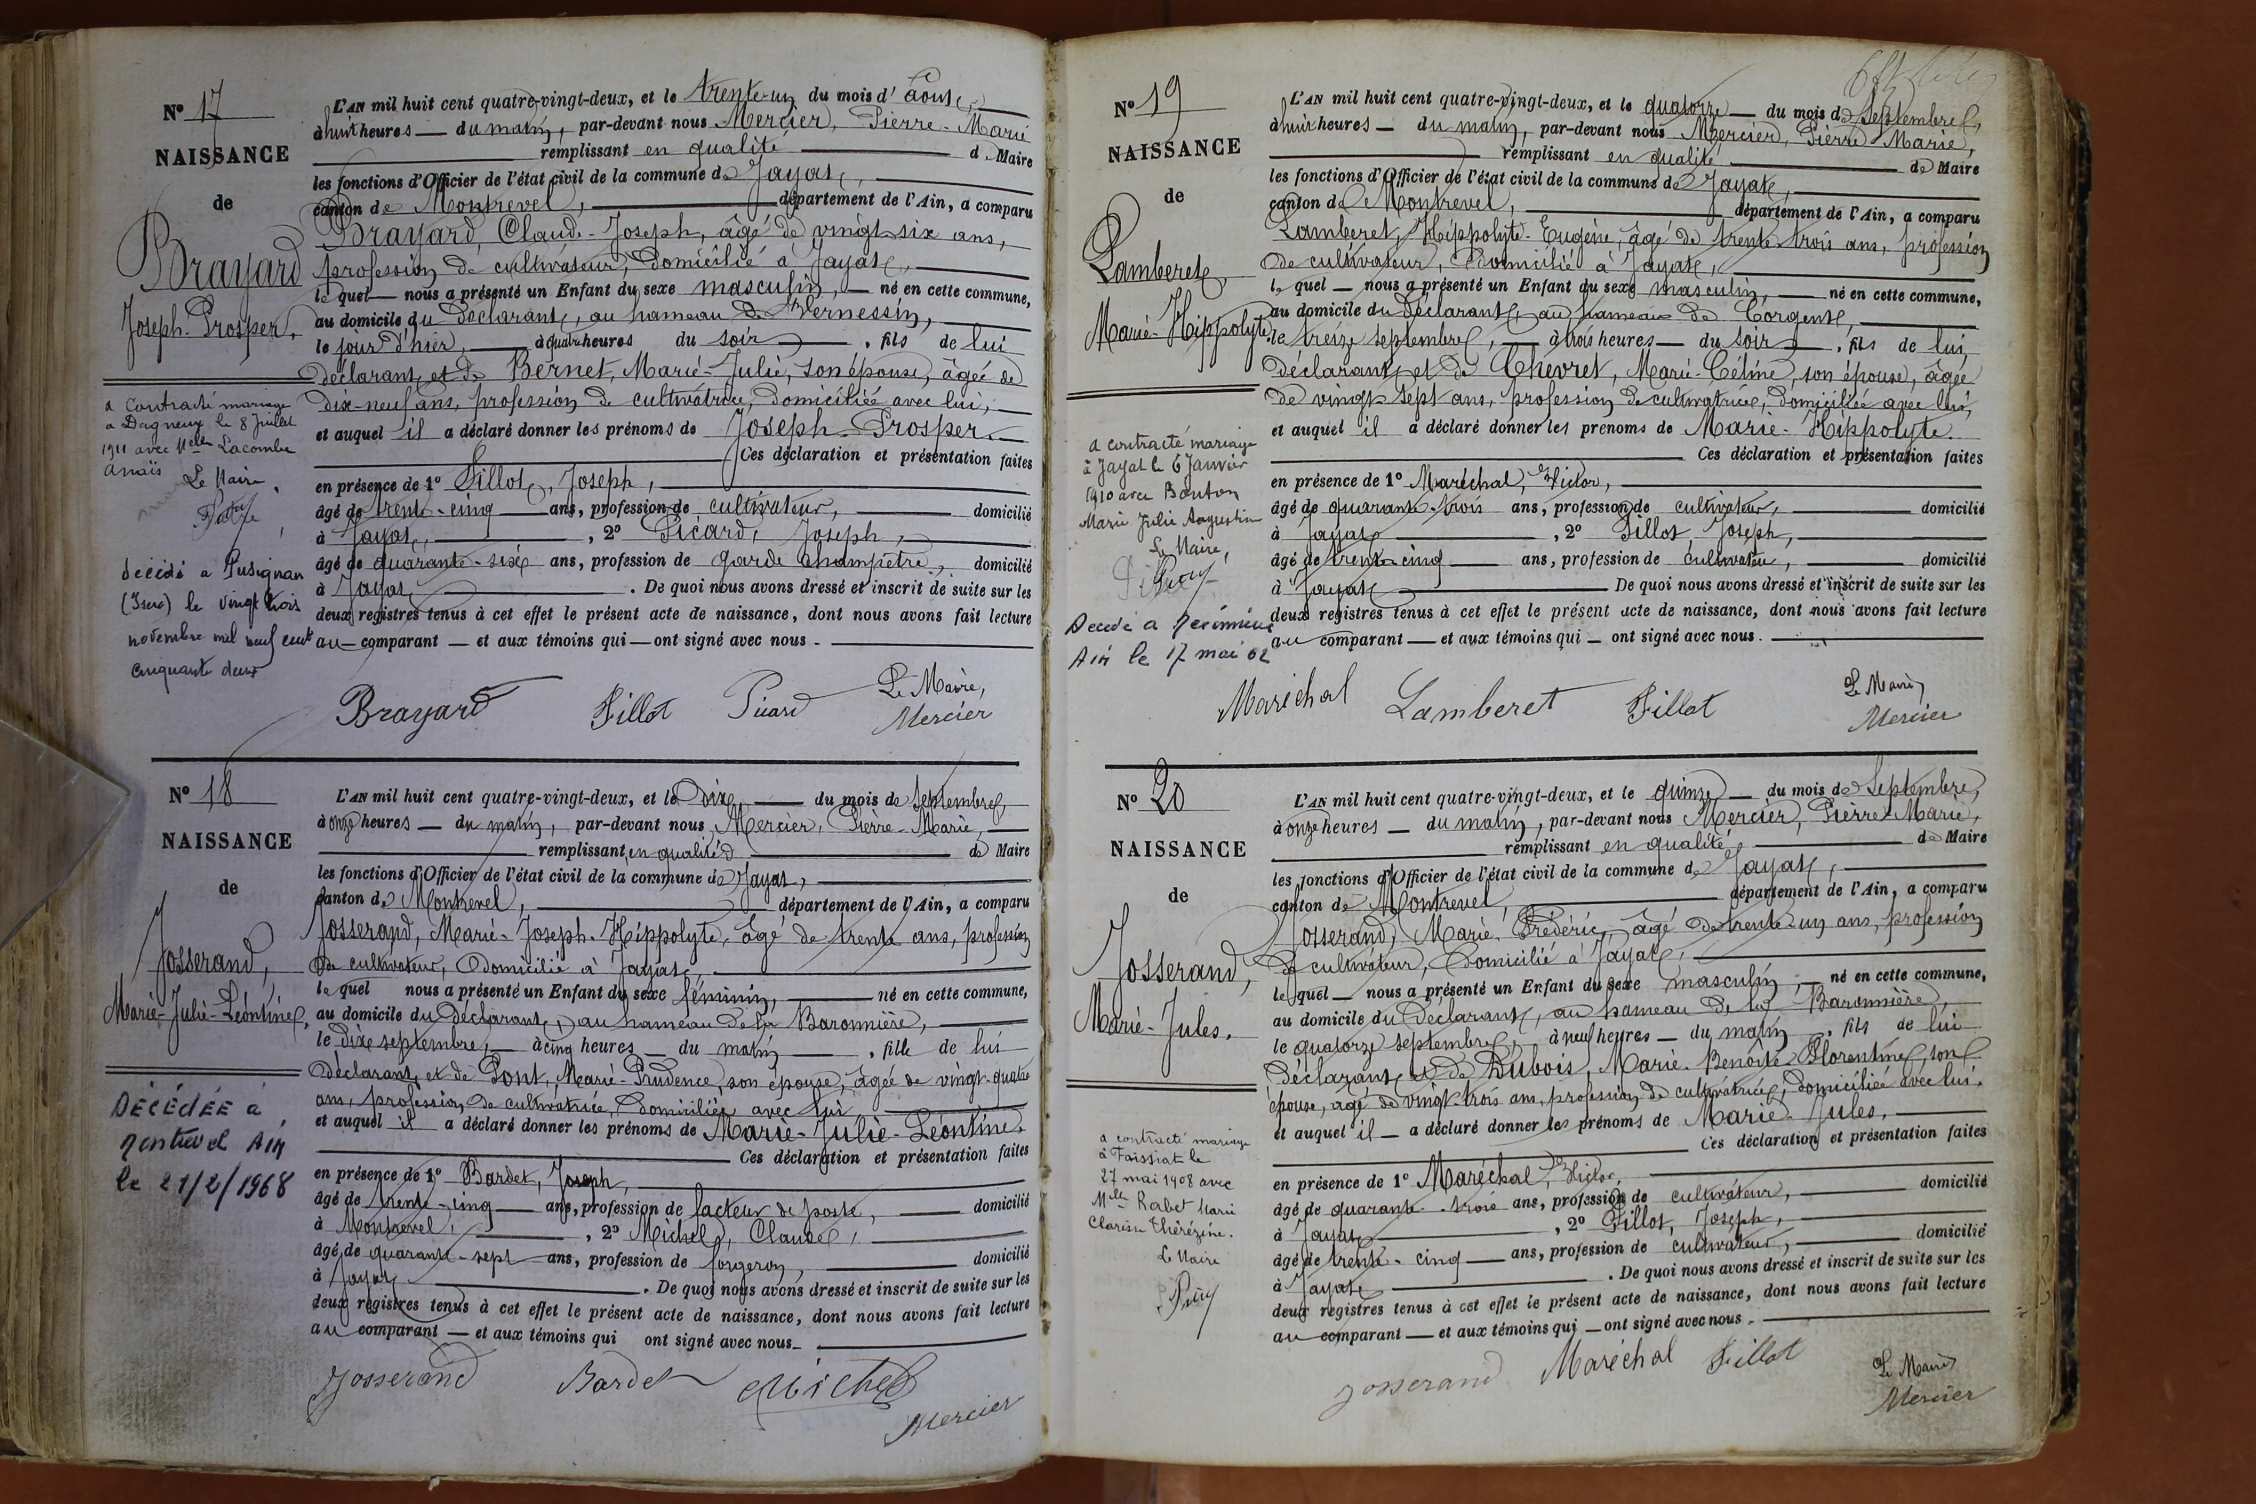 N° 17
NAISSANCE
de
Brayard
Joseph-Prosper,
a contracté mariage
a Dagneux le 8 Juillet
1911 avec Melle Lacombe
Anaïs
Le Maire
décédé a Pusignan
(Isere) le vingt trois
novembre mil neuf cent
cinquante deux
L'AN mil huit cent quatre-vingt-deux, et le trente-un du mois d'Août,
à huit heures — du matin, par-devant nous Mercier, Pierre-Marie
remplissant en qualité de Maire
les fonctions d'Officier de l'état civil de la commune de Jayat,
canton de Montrevel, département de l'Ain, a comparu
Brayard, Claude-Joseph, âgé de vingt-six ans,
profession de cultivateur, domicilié à Jayat,
le quel — nous a présenté un Enfant du sexe masculin, — né en cette commune,
au domicile du déclarant, au hameau de Vernessin,
le jour d'hier, — à quatre heures du soir, fils de lui
déclarant et de Bernet, Marie-Julie, son épouse, âgée de
dix-neuf ans, profession de cultivatrice, domiciliée avec lui,
et auquel il a déclaré donner les prénoms de Joseph-Prosper.
Ces déclaration et présentation faites
en présence de 1° Fillot, Joseph,
âgé de trente-cinq — ans, profession de cultivateur, domicilié
à Jayat, , 2° Picard, Joseph,
âgé de quarante-six ans, profession de garde champêtre, domicilié
à Jayat . De quoi nous avons dressé et inscrit de suite sur les
deux registres tenus à cet effet le présent acte de naissance, dont nous avons fait lecture
au — comparant — et aux témoins qui — ont signé avec nous.
Brayard Fillot Picard Le Maire,
Mercier
N° 18
NAISSANCE
de
Josserand,
Marie-Julie-Léontine,
DÉCÉDÉE à
Montrevel AIN
le 21/2/1968
L'AN mil huit cent quatre-vingt-deux, et le dix — du mois de septembre,
à onze heures — du matin, par-devant nous Mercier, Pierre-Marie,
remplissant en qualité de Maire
les fonctions d'Officier de l'état civil de la commune de Jayat,
canton de Montrevel, département de l'Ain, a comparu
Josserand, Marie-Joseph-Hippolyte, âgé de trente ans, profession
de cultivateur, domicilié à Jayat,
le quel nous a présenté un Enfant du sexe féminin, né en cette commune,
au domicile du déclarant, au hameau de la Baronnière,
le dix septembre, — à cinq heures — du matin, fille de lui
déclarant et de Pont, Marie-Prudence, son épouse, âgée de vingt-quatre
ans, profession de cultivatrice, domiciliée avec lui
et auquel il a déclaré donner les prénoms de Marie-Julie-Léontine.
Ces déclaration et présentation faites
en présence de 1° Bardet, Joseph,
âgé de trente-cinq — ans, profession de facteur de poste, domicilié
à Montrevel, , 2° Michel, Claude,
âgé de quarante-sept ans, profession de forgeron, domicilié
à Jayat . De quoi nous avons dressé et inscrit de suite sur les
deux registres tenus à cet effet le présent acte de naissance, dont nous avons fait lecture
au comparant — et aux témoins qui ont signé avec nous.
Josserand Bardet Michel
Mercier
N° 19
NAISSANCE
de
Lamberet,
Marie-Hippolyte
a contracté mariage
à Jayat le 6 Janvier
1910 avec Bouton
Marie Julie Augustine
Le Maire,
Décédé a
Ain le 17 mai 62
L'AN mil huit cent quatre-vingt-deux, et le quatorze — du mois de septembre,
à huit heures — du matin, par-devant nous Mercier, Pierre Marie,
remplissant en qualité de Maire
les fonctions d'Officier de l'état civil de la commune de Jayat,
canton de Montrevel, département de l'Ain, a comparu
Lamberet, Hippolyte-Eugène, âgé de trente-trois ans, profession
de cultivateur, domicilié à Jayat,
le quel — nous a présenté un Enfant du sexe masculin, — né en cette commune,
au domicile du déclarant, au hameau de Corgent,
le treize septembre, — à trois heures — du soir, fils de lui
déclarant, et de Chevret, Marie-Céline, son épouse, âgée
de vingt-sept ans, profession de cultivatrice, domiciliée avec lui,
et auquel il a déclaré donner les prénoms de Marie-Hippolyte.
Ces déclaration et présentation faites
en présence de 1° Maréchal, Victor,
âgé de quarante-trois ans, profession de cultivateur, domicilié
à Jayat , 2° Fillot, Joseph,
âgé de trente-cinq ans, profession de cultivateur, domicilié
à Jayat De quoi nous avons dressé et inscrit de suite sur les
deux registres tenus à cet effet le présent acte de naissance, dont nous avons fait lecture
au comparant — et aux témoins qui — ont signé avec nous.
Maréchal Lamberet Fillot Le Maire,
Mercier
N° 20
NAISSANCE
de
Josserand,
Marie-Jules.
a contracté mariage
à Foissiat le
27 mai 1908 avec
Melle Rabet Marie
Clarisse Thérézine.
Le Maire
L'AN mil huit cent quatre-vingt-deux, et le quinze — du mois de Septembre,
à onze heures — du matin, par-devant nous Mercier, Pierre-Marie,
remplissant en qualité de Maire
les fonctions d'Officier de l'état civil de la commune de Jayat,
canton de Montrevel, département de l'Ain, a comparu
Josserand, Marie-Frédéric, âgé de trente-un ans, profession
de cultivateur, domicilié à Jayat,
le quel — nous a présenté un Enfant du sexe masculin, — né en cette commune,
au domicile du déclarant, au hameau de la Baronnière,
le quatorze septembre, à neuf heures — du matin, fils de lui
déclarant et de Dubois, Marie-Benoîte-Florentine, son
épouse, âgé de vingt-trois ans, profession de cultivatrice, domiciliée avec lui.
et auquel il — a déclaré donner les prénoms de Marie-Jules.
Ces déclaration et présentation faites
en présence de 1° Maréchal, Victor,
âgé de quarante-trois ans, profession de cultivateur, domicilié
à Jayat , 2° Fillot, Joseph,
âgé de trente-cinq — ans, profession de cultivateur, domicilié
à Jayat . De quoi nous avons dressé et inscrit de suite sur les
deux registres tenus à cet effet le présent acte de naissance, dont nous avons fait lecture
au comparant — et aux témoins qui — ont signé avec nous.
Josserand Maréchal Fillot Le Maire
Mercier